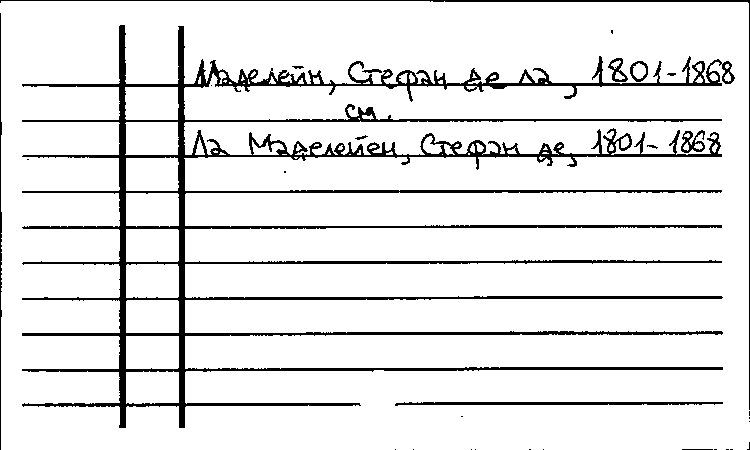 Маделейн, Стефан де ла, 1801-1868
см.
Ла Маделейен, Стефан де, 1801-1868